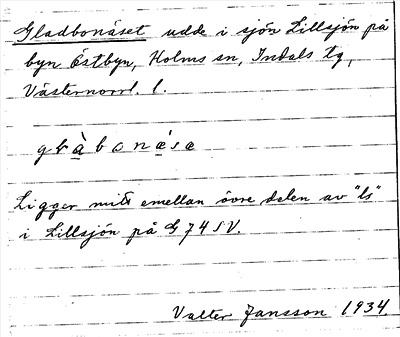 Gladbonäset udde i sjön Lillsjön på
byn Östbyn, Holms sn, Indals tg,
Västernorrl. l.
Ligger mitt emellan övre delen av "ls"
i Lillsjön på G 74 SV.
Valter Jansson 1934.